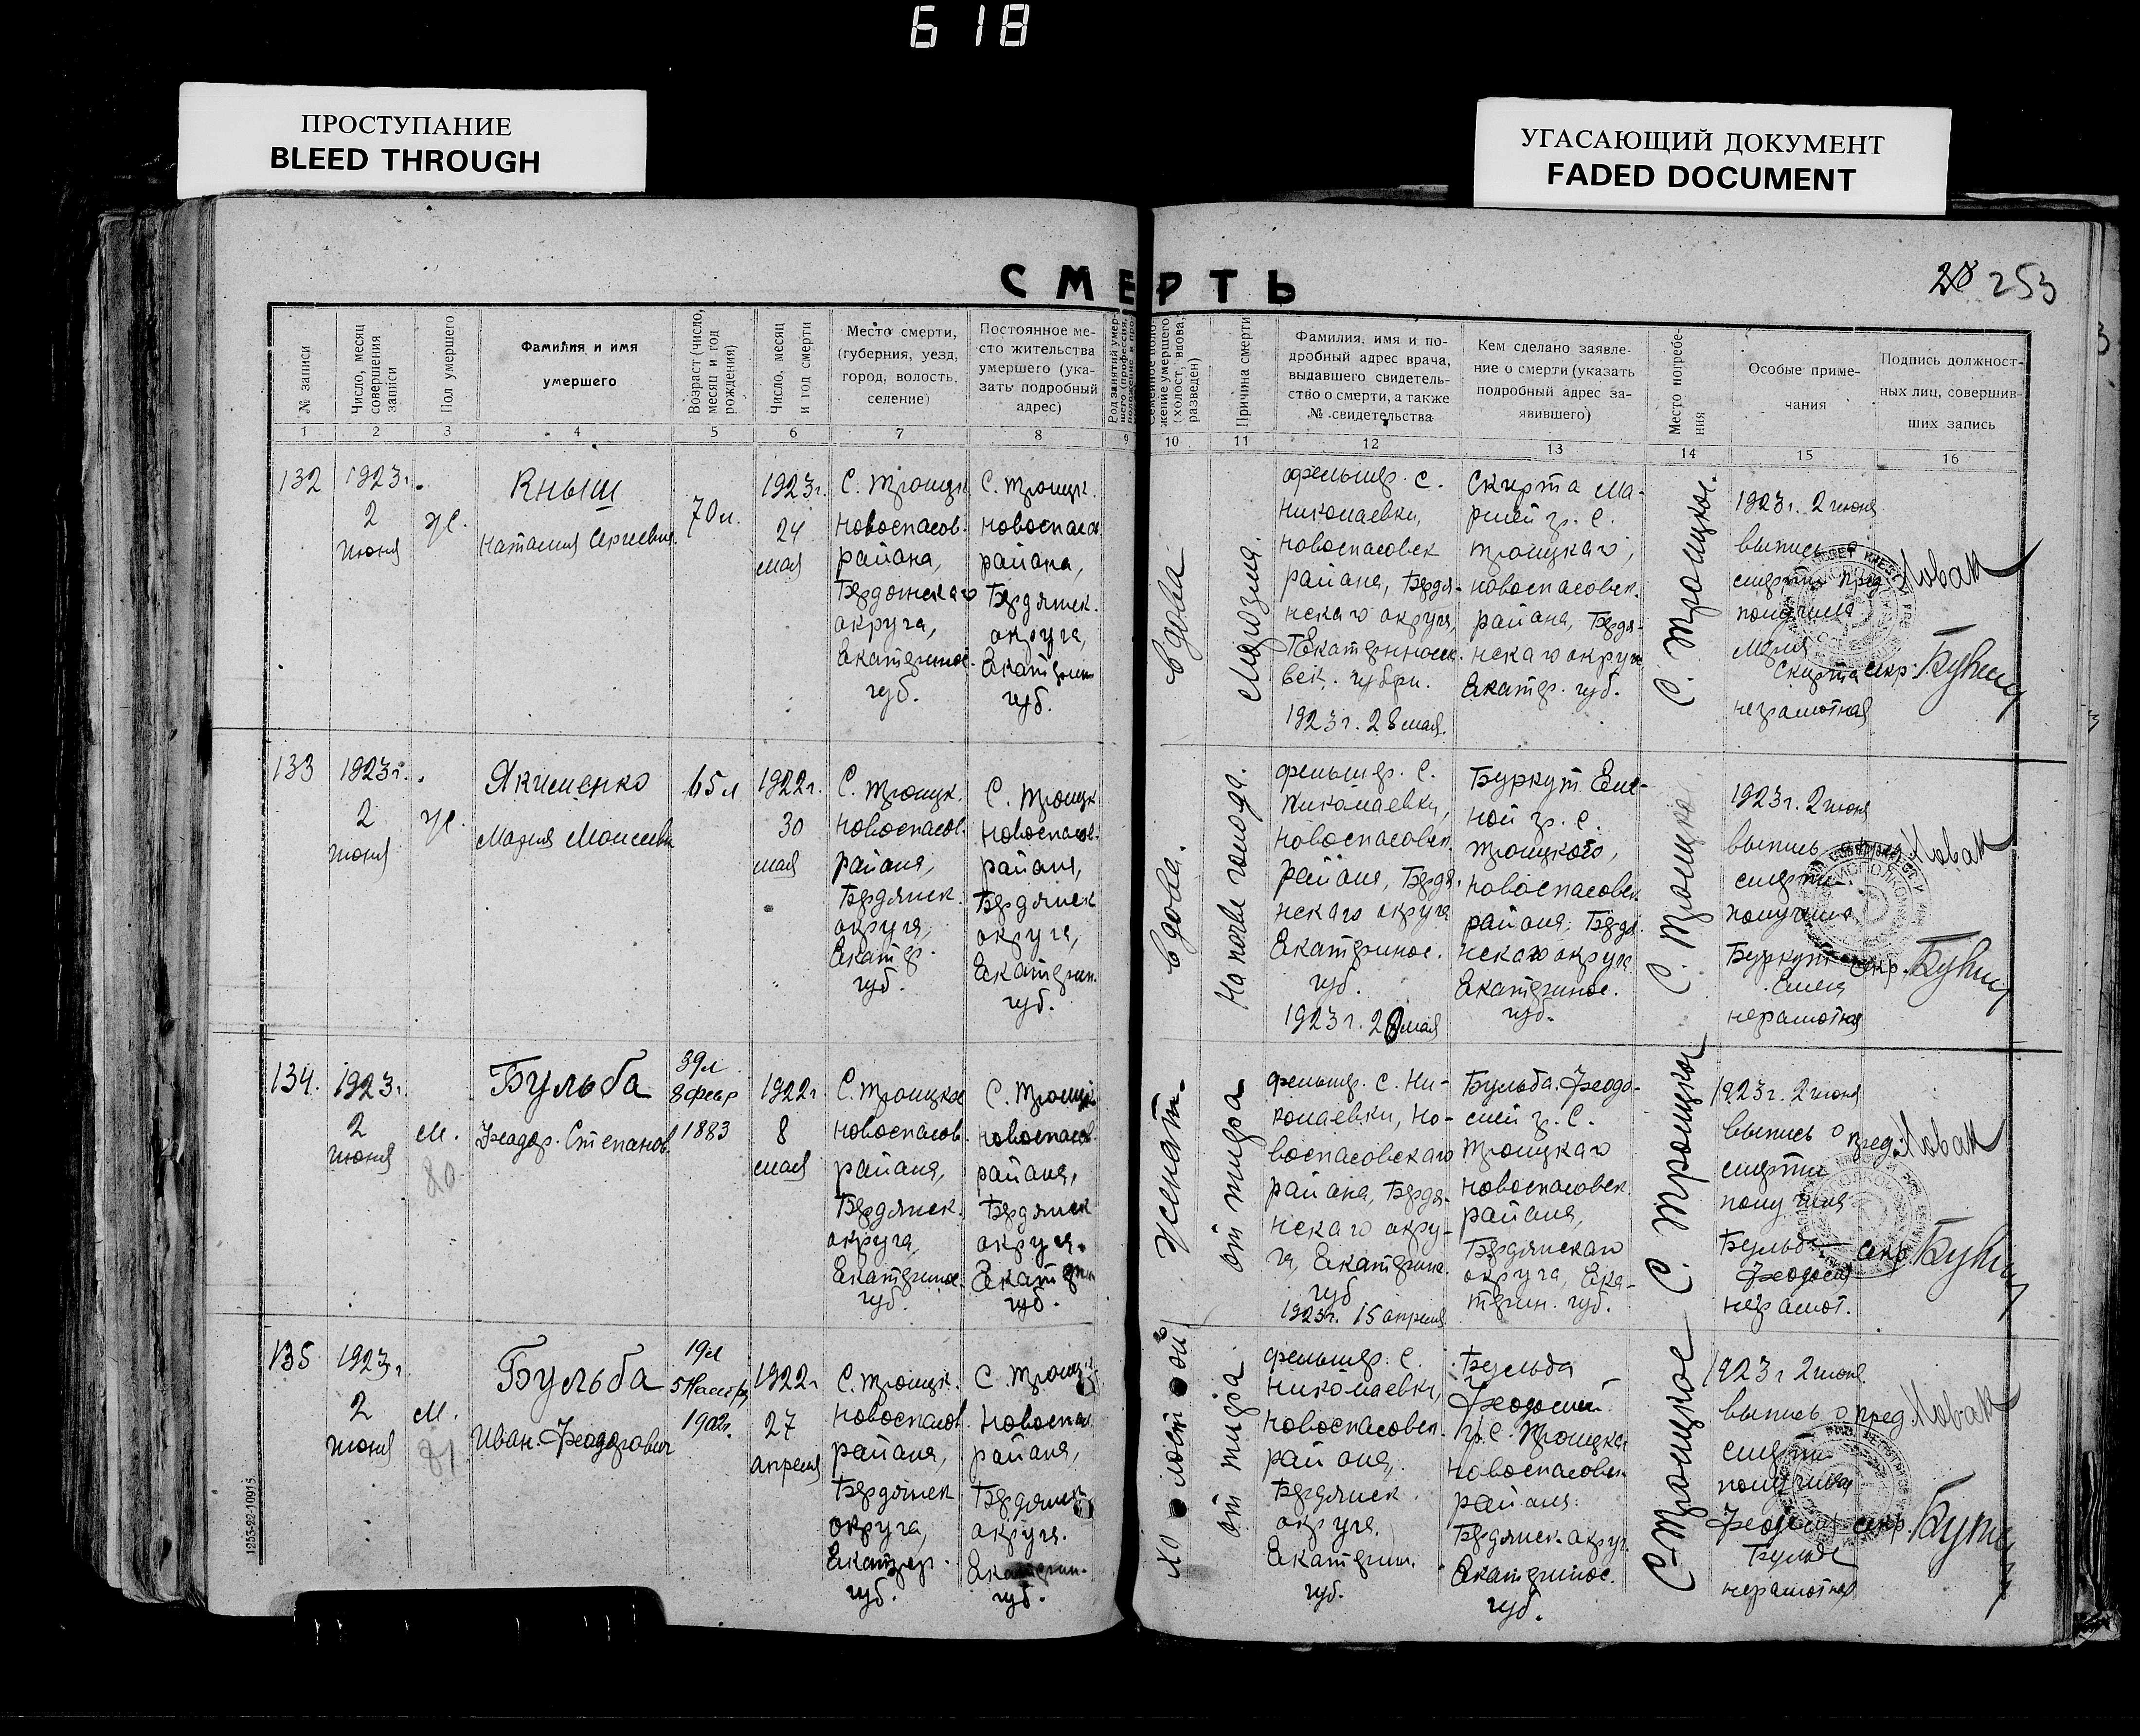 618
ПРОСТУПАНИЕ
BLEED THROUGH
УГАСАЮЩИЙ ДОКУМЕНТ
FADED DOCUMENT
СМЕРТЬ
253
№ записи
Число, месяц
совершения
записи
Пол умершего
Фамилия и имя
умершего
Возраст (число,
месяц и год
рождения)
Число, месяц
и год смерти
Место смерти,
(губерния, уезд,
город, волость,
селение)
Постоянное ме-
сто жительства
умершего (ука-
зать подробный
адрес)
жение умершего
(холост, вдова,
разведен)
Причина смерти
Фамилия, имя и по-
дробный адрес врача,
выдавшего свидетель-
ство о смерти, а также
№ свидетельства
Кем сделано заявле-
ние о смерти (указать
подробный адрес за-
явившего)
Место погребе-
ния
Особые приме-
чания
Подпись должност-
ных лиц, совершив-
ших запись
1 2 3 4 5 6 7 8 9 10 11 12 13 14 15 16
132
1923г.
2
июня
ж.
Кныш
Наталия Сергиевна
70 л.
1923г.
24
мая
С. Троицк
Новоспасов.
района,
Бердянскаго
округа,
Екатеринос.
губ.
С. Троицк.
Новоспасов
района,
Бердянск.
округа,
Екатерин
губ.
вдова
Малярия.
фельшер. С.
Николаевки,
Новоспасовск
района, Бердя-
нскаго округа,
Екатеринослав
век. губерн.
1923г. 28 мая.
Скирта Ма-
рией гр. С.
Троицкаго,
Новоспасовск.
района, Бердя-
нскаго округа
Екатер. губ.
С. Троицкое.
1923г. 2 июня
выпись о
смерти
получила
Мария
Скирта
неграмотная
пред. Новак
секр.
133
1923г.
2
июня
ж.
Якименко
Мария Моисеевн
65 л
1922г.
30
мая
С. Троицк.
Новоспасов.
района,
Бердянск.
округа,
Екатер.
губ.
С. Троицк
Новоспасов.
района,
Бердянск
округа,
Екатерин.
губ.
вдова.
На почве голода.
фельшер. С.
Николаевки,
Новоспасовск.
района, Бердя-
нскаго округа
Екатеринос.
губ.
1923г. 28 мая
Буркут Еле-
ной гр. С.
Троицкого,
Новоспасовск
района, Бердя-
нскаго округа
Екатеринос.
губ.
С. Троицкое
1923г. 2 июня
выпись о
смерти
получила
Буркут
Елена
неграмотная
Новак
секр.
134.
1923г.
2
июня
м.
80
Бульба
Феодор. Степанов.
39 л.
8 февр
1883
1922г
8
мая
С. Троицкое
Новоспасов.
района,
Бердянск.
округа,
Екатеринос.
губ.
С. Троицк
Новоспасов.
района,
Бердянск
округа.
Екатерин
губ.
Женат.
от тифа
фельшер. С. Ни-
колаевки, Но-
воспасовскаго
района, Бердя-
нскаго окру-
га, Екатерин.
губ
1923г. 15 апреля
Бульба Феодо-
сией гр. С.
Троицкаго
Новоспасовск.
района,
Бердянскаго
округа, Ека-
терин. губ.
С. Троицкое
1923г. 2 июня
выпись о
смерти
получила
Бульба
Феодосия
неграмот.
пред. Новак
секр
135
1923г
2
июня
м.
81
Бульба
Иван. Феодорович
19 л
1902г.
1922г
27
апреля
С. Троицк.
Новоспасов.
района,
Бердянск
округа,
Екатер.
губ.
С Троицк
Новоспас
района,
Бердянск
округа.
Екатерин.
губ.
от тифа.
фельшер. С.
Николаевки,
Новоспасовск.
района,
Бердянск.
округа,
Екатерин.
губ.
Бульба
Феодосией
гр. С. Троицка
Новоспасовск.
района.
Бердянск. округ.
Екатеринос.
губ.
С Троицкое
1923г 2 июня
выпись о
смерти
получила
Феодосия
Бульба
неграмотная
пред. Новак
секр.
1253-22-10915